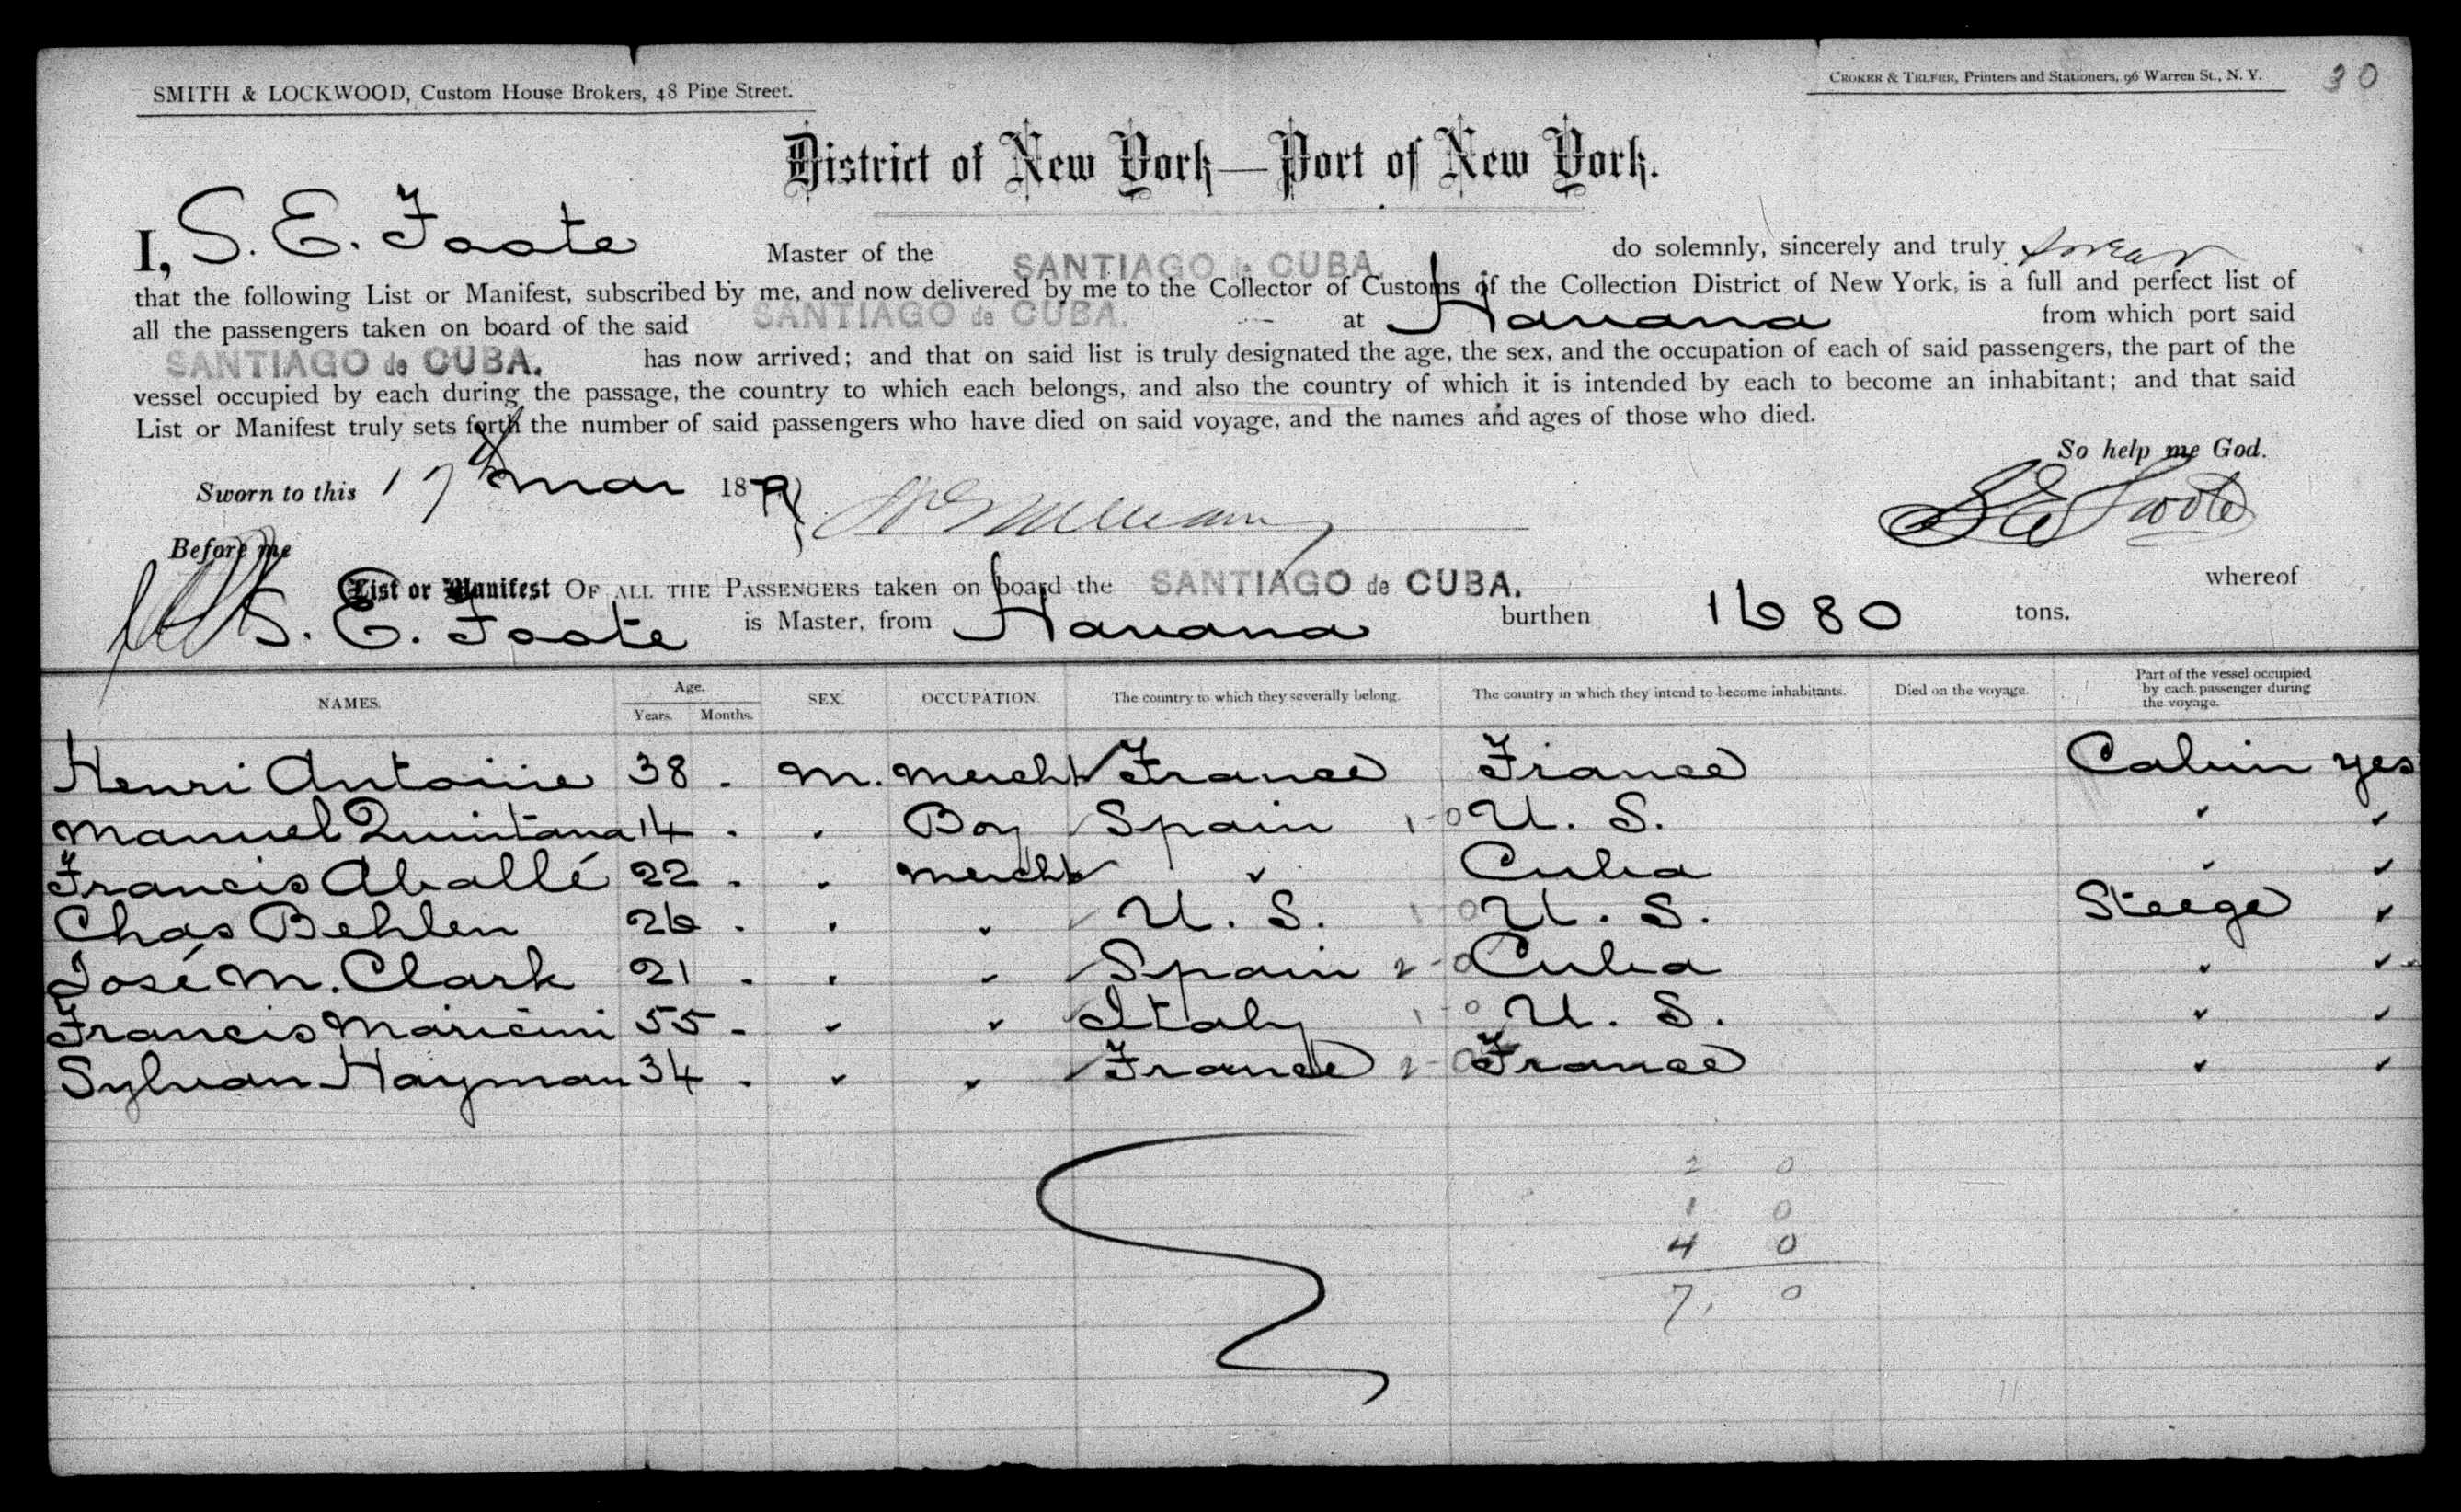 SMITH & LOCKWOOD, Custom House Brokers, 48 Pine Street.
CROKER & TELFER, Printers and Stationers, 96 Warren St., N. Y.
30
District of New York—Port of New York.
I, S. E. Foote Master of the SANTIAGO de CUBA. do solemnly, sincerely and truly swear
that the following List or Manifest, subscribed by me, and now delivered by me to the Collector of Customs of the Collection District of New York, is a full and perfect list of
all the passengers taken on board of the said SANTIAGO de CUBA. at Havana from which port said
SANTIAGO de CUBA. has now arrived; and that on said list is truly designated the age, the sex, and the occupation of each of said passengers, the part of the
vessel occupied by each during the passage, the country to which each belongs, and also the country of which it is intended by each to become an inhabitant; and that said
List or Manifest truly sets forth the number of said passengers who have died on said voyage, and the names and ages of those who died.
So help me God.
Sworn to this 17 Mar 189
S E Foote
Before me
List or Manifest OF ALL THE PASSENGERS taken on board the SANTIAGO de CUBA. whereof
S. E. Foote is Master, from Havana burthen 1680 tons.
NAMES. Age. Years. Months. SEX. OCCUPATION. The country to which they severally belong. The country in which they intend to become inhabitants. Died on the voyage. Part of the vessel occupied by each passenger during the voyage.
Henri Antoine 38 . M. Mercht France France Cabin yes
Manuel Quintana 14 . " Boy Spain 1-0 U. S. " "
Francis Aballé 22 . " Mercht " Cuba " "
Chas Behlen 26 . " " U. S. 1-0 U. S. Steege "
José M. Clark 21 . " " Spain 2-0 Cuba " "
Francis Maricini 55 . " " Italy 1-0 U. S. " "
Sylvan Hayman 34 . " " France 2-0 France " "
2 0
1 0
4 0
7, 0